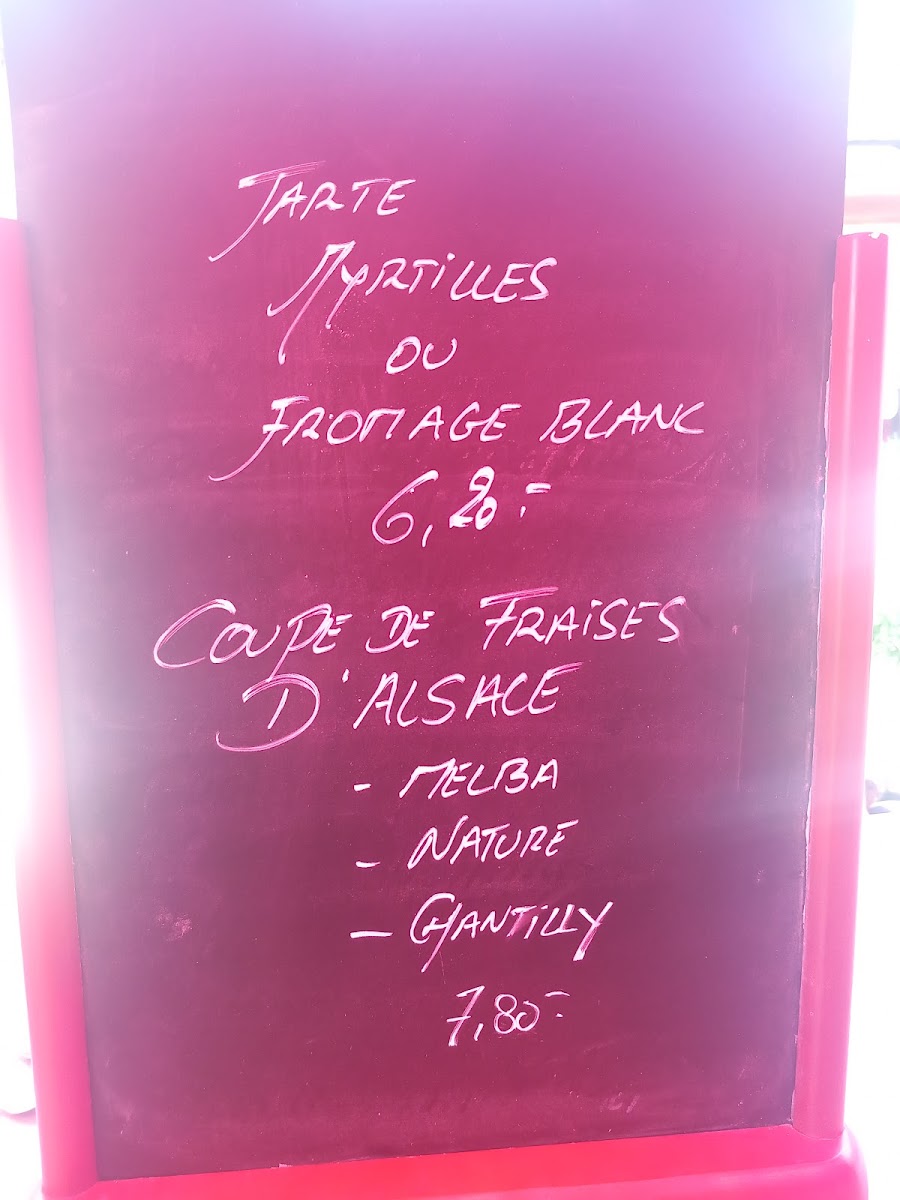 TARTE
MYRTILLES
OU
FROMAGE BLANC
6,20.-
COUPE DE FRAISES
D'ALSACE
- MELBA
- NATURE
- CHANTILLY
7,80.-